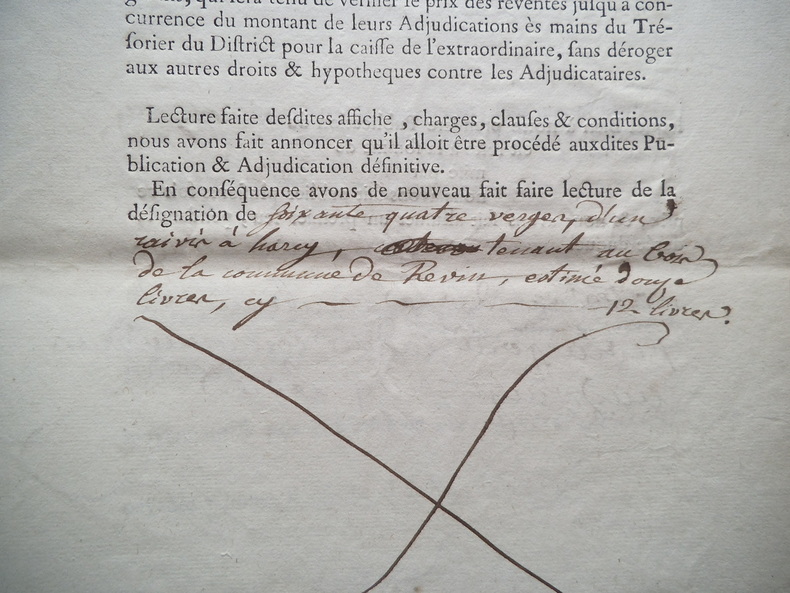 qui sera tenu de vérifier le prix des reventes juſqu'à con-
currence du montant de leurs Adjudications ès mains du Tré-
ſorier du Diſtrict pour la caiſſe de l'extraordinaire, ſans déroger
aux autres droits & hypotheques contre les Adjudicataires.
Lecture faite deſdites affiche, charges, clauſes & conditions,
nous avons fait annoncer qu'il alloit être procédé auxdites Pu-
blication & Adjudication définitive.
En conſéquence avons de nouveau fait faire lecture de la
déſignation de soixante quatre verges, d'un
à harcy, tenant au bois
de la commune de Revin, estimé douze
livres, cy 12 livres.